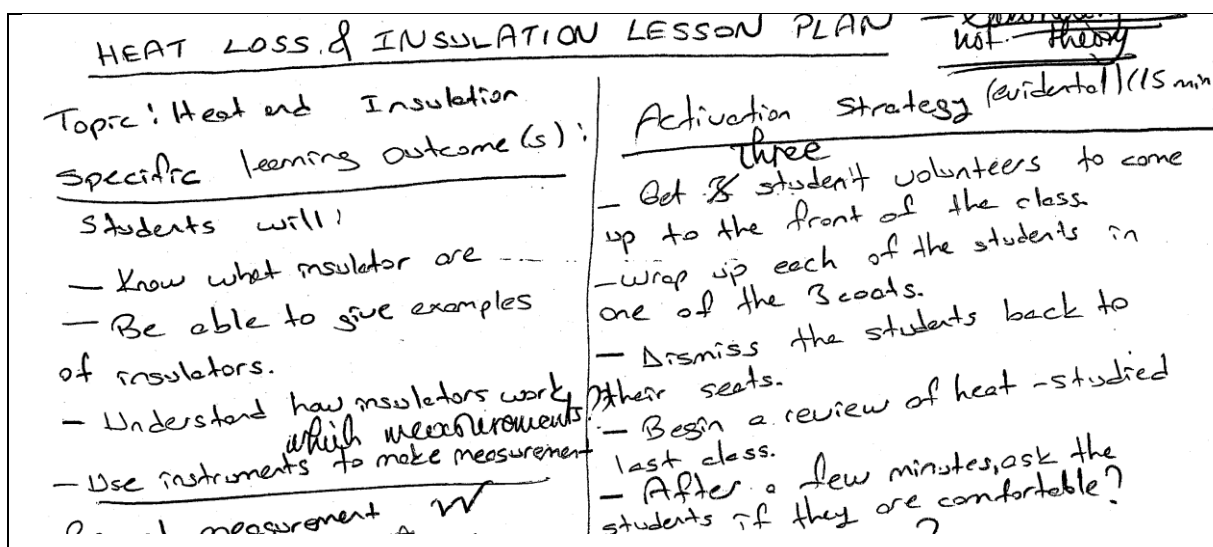 HEAT LOSS & INSULATION LESSON PLAN —
not theory
Topic: Heat and Insulation
Specific learning outcome(s):
Students will:
— Know what insulator are
— Be able to give examples
of insulators.
— Understand how insulators work
which measurements?
— Use instruments to make measurement
measurement
Activation Strategy (evidental) (15 min
three
— Get 3 student volunteers to come
up to the front of the class.
— wrap up each of the students in
one of the 3 coats.
— Dismiss the students back to
their seats.
— Begin a review of heat - studied
last class.
— After a few minutes, ask the
students if they are comfortable?